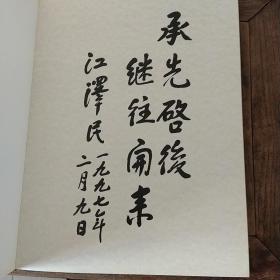 承先啓後
继往開来
江澤民
一九九七年
二月九日